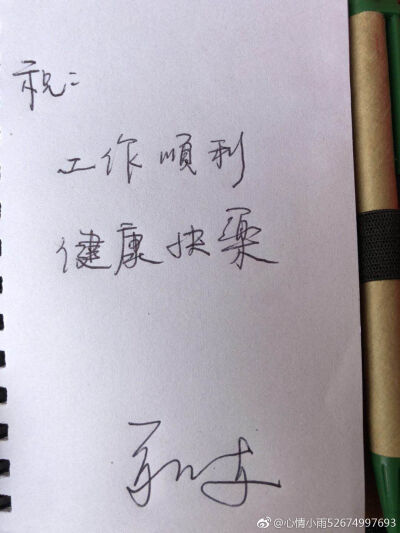 祝：
工作順利
健康快樂
@心情小雨52674997693